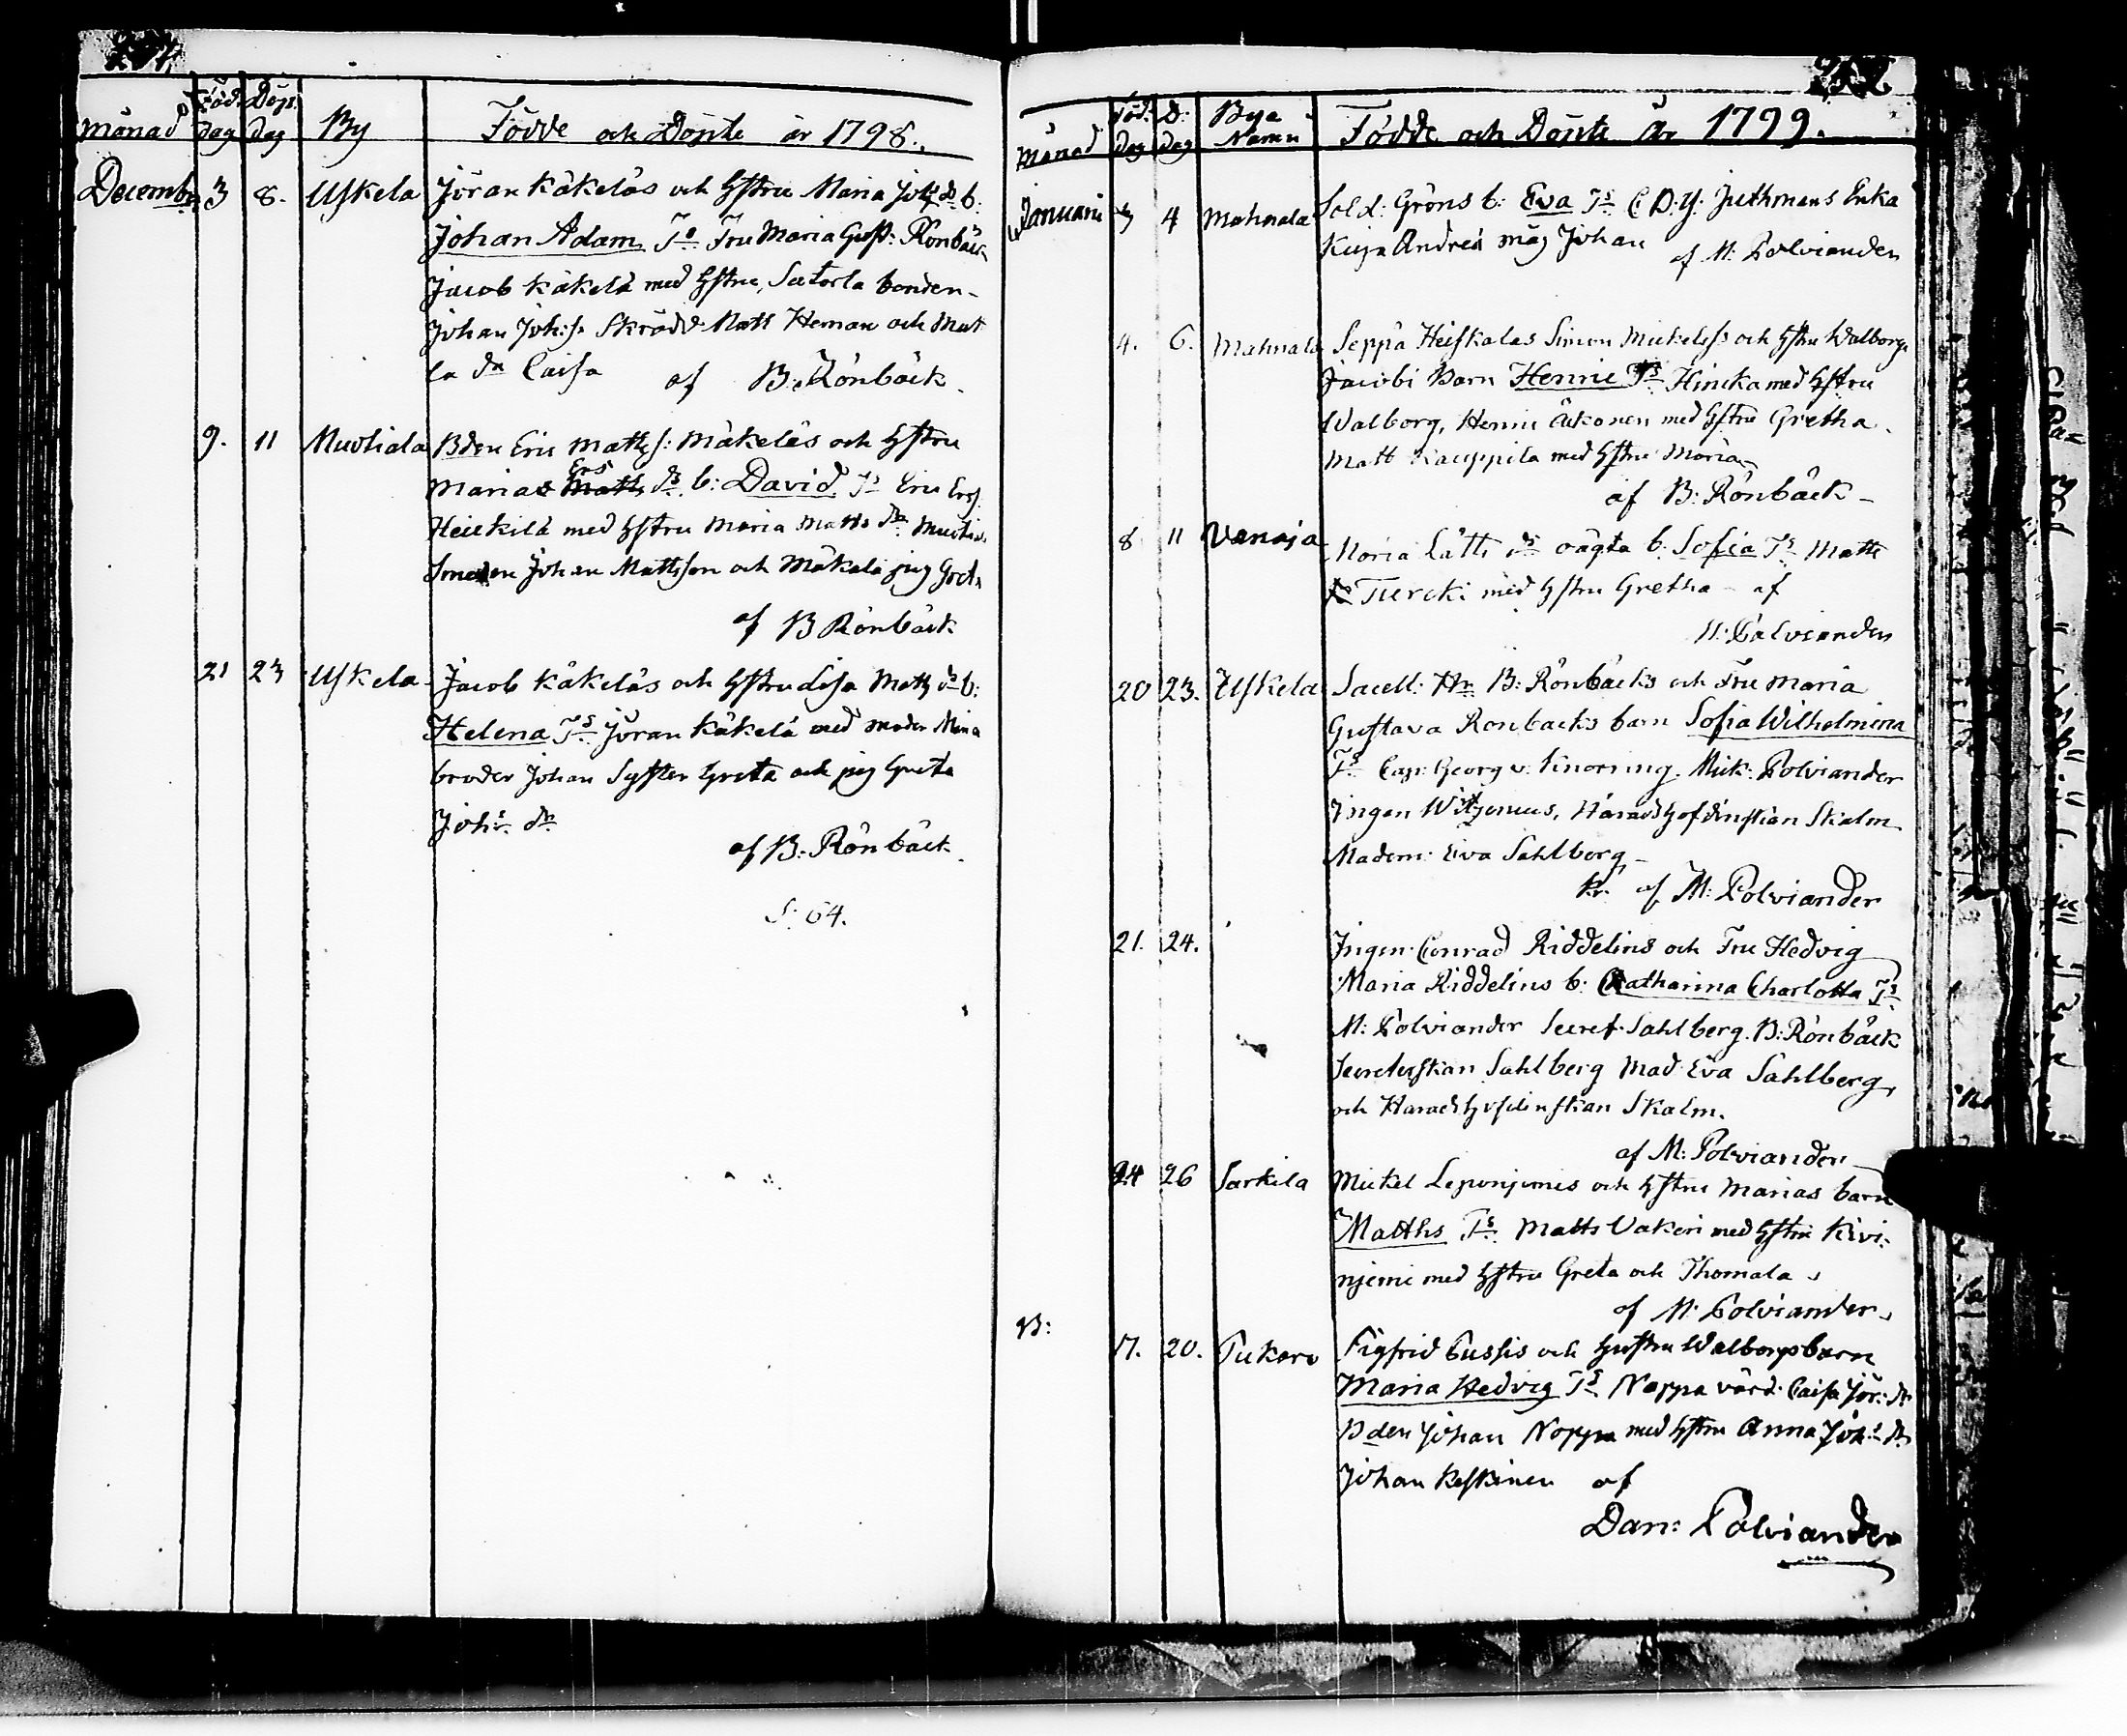 månad
Föd. dag
Döpt. dag
By
Födde och Döpte år 1798.
December 3 8. Uskela Jöran Käkeläs och Hstru Maria Johs dr b:
Johan Adam Ts Fru Maria Gust: Rönbäck
Jacob Käkelä med Hstru, Satorla bonden
Johan Joh:s. Skrädd. Matt Heman och Mat
la dr Caisa af B: Rönbäck.
9. 11 Muotiala Bden Eric Matts: Mäkeläs och Hstru
Marias Ers dr b: David Ts Eric Ers
Heickilä med Hstru Maria Matts dr Muotia.
Smeden Johan Mattsson och Mäkelä pig Gret.
af B Rönbäck
21 23 Uskela Jacob Käkeläs och Hstru Lisa Matts dr b:
Helena Ts Jöran Käkelä med moder Maria
broder Johan Syster Greta och pig Greta
Johs dr
af B: Rönbäck
S: 64.
månad
Föd: dag
D: dag
Bya Namn
Födde och Döpte År 1799.
Januari 3 4 Mahnala Sold: Gröns b: Eva Ts Juthmans Enka
Kuja Andreä måg Johan af M: Polviander
4. 6. Mahnala Seppä Heiskalas Simon Mickelss och Hstru Walborg
Jacobi Barn Henric Ts Hincka med Hstru
Walborg, Henric Äikonen med Hstru Gretha
Matt Kauppila med Hstru Maria
af B: Rönbäck
8 11 Vanaja Maria Lätti drs oägta b: Sofia Ts Matts
Tiercki med Hstru Gretha af
M: Polviander
20 23. Uskela Sacell: Hr B: Rönbäcks och Fru Maria
Gustava Rönbäcks barn Sofia Wilhelmina
Ts Cap: Georg v: Knorring. Mick: Polviander
Ingen Häradshöfdinskan Skalm
Madem: Eva Sahlberg
Kr. af M: Polviander
21. 24. Ingen Conrad Riddelins och Fru Hedvig
Maria Riddelins b: Catharina Charlotta Ts
M: Polviander Secret. Sahlberg. B: Rönbäck
Secreterskan Sahlberg Mad Eva Sahlberg
och Häradshöfdinskan Skalm.
af M: Polviander
24 26 Sarkila Mickel Leponjemis och Hstru Marias barn
Matths Ts Matts Vakeri med Hstru Kivi-
njemi med Hstru Greta och Thomala
af M: Polviander
B: 17. 20. Tukoro Sigfrid Pussis och Hustru Walborgs barn
Maria Hedvig Ts Noppa värd. Caisa Jör: dr
Bden Johan Noppa med Hstru Anna Johs dr
Johan Keskinen af
Dan: Polviander